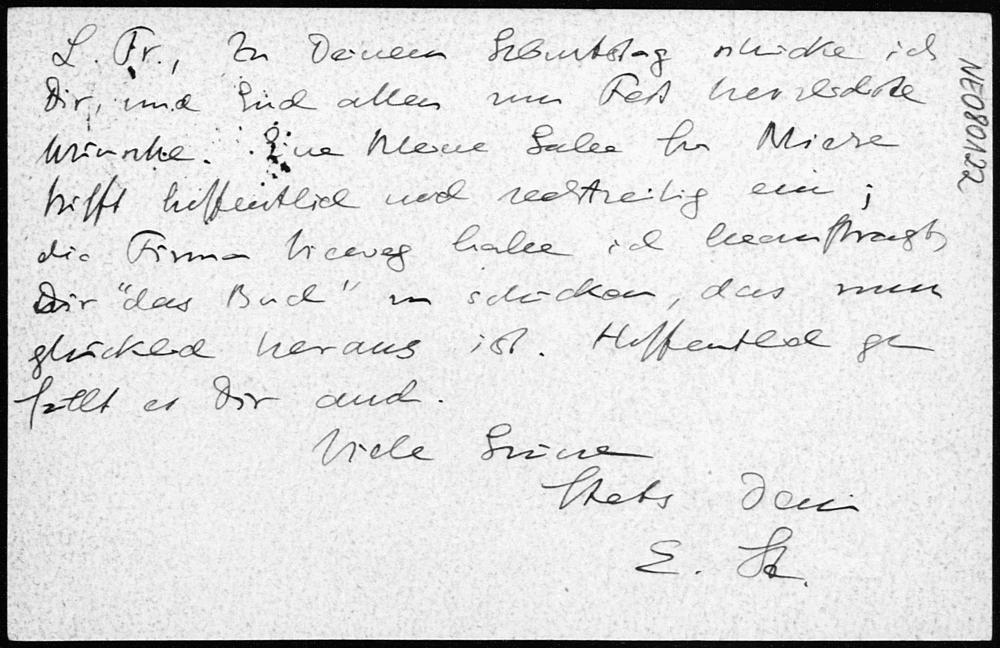 L. Fr., Zu Deinem Geburtstag schicke ich
Dir, und Euch allen zum Fest herzlichste
Wünsche. Eine kleine Gabe für
trifft hoffentlich noch rechtzeitig ein;
die Firma Vieweg habe ich beauftragt,
Dir "das Buch" zu schicken, das nun
glücklich heraus ist. Hoffentlich ge
fällt es Dir auch.
Viele Grüsse
Stets Dein
E. St.
NE080122